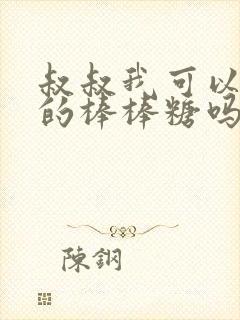 叔叔我可以
的棒棒糖吗
陳鋼